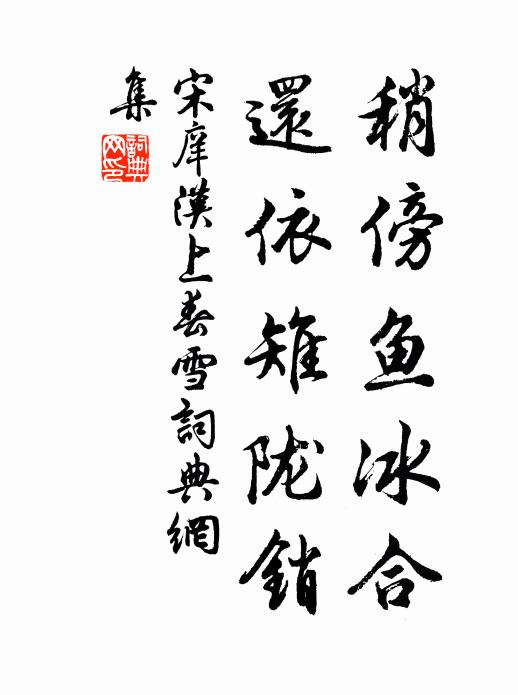 稍傍鱼冰合
還依雉陇銷
宋庠漢上春雪詞典網
集
詞典
网印